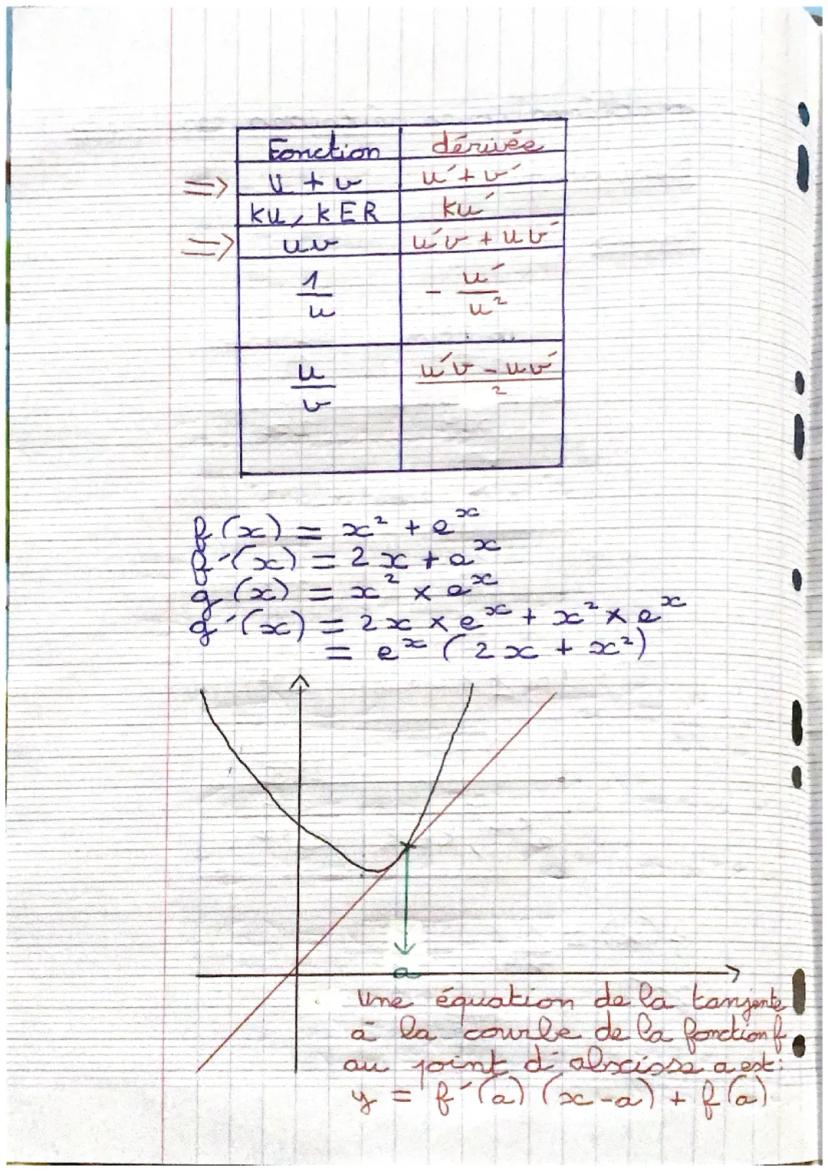 Fonction dérivée
=> U + v u' + v'
ku, k ER ku'
=> uv u'v + uv'
1/u - u'/u²
u/v u'v - uv'/ ²
f(x) = x² + e^x
f'(x) = 2x + e^x
g(x) = x² × e^x
g'(x) = 2x × e^x + x² × e^x
= e^x (2x + x²)
a
Une équation de la tangente
à la courbe de la fonction f
au point d'abscisse a est :
y = f'(a) (x-a) + f(a)